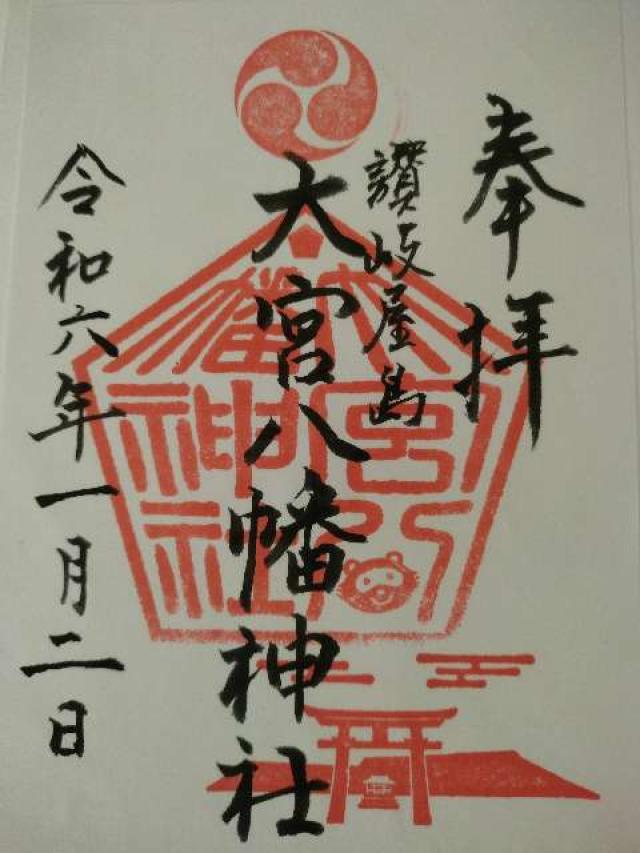 奉拝
讃岐屋島
大宮八幡神社
令和六年一月二日
大宮八幡神社